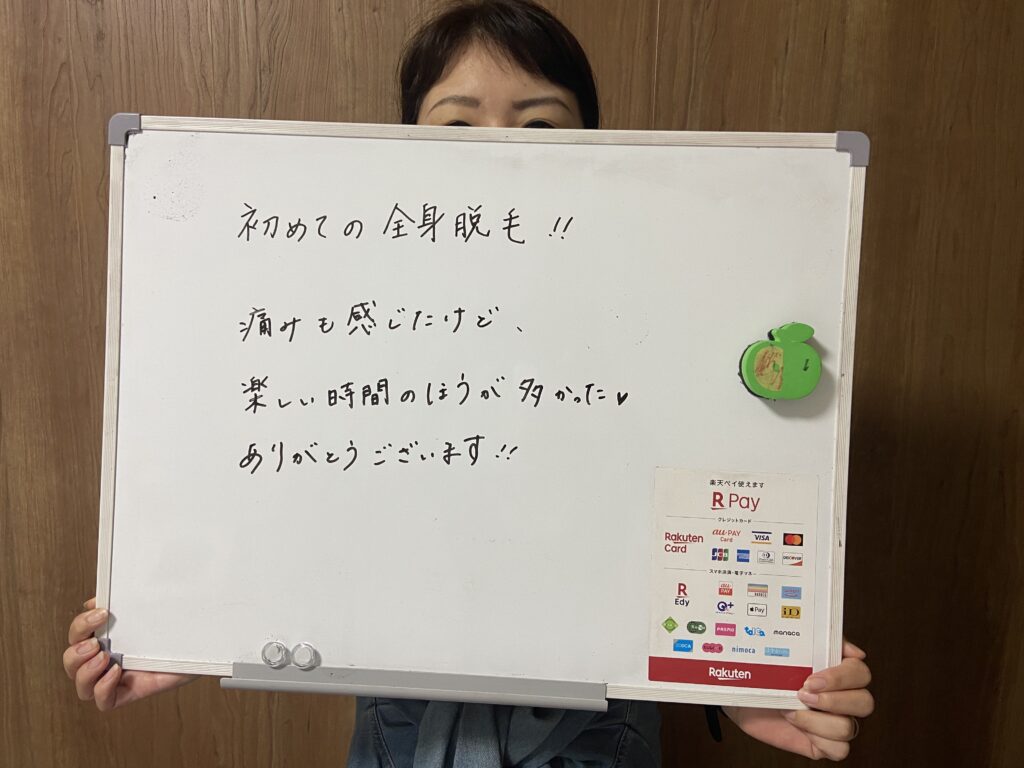 初めての全身脱毛!!
痛みも感じたけど、
楽しい時間のほうが多かった♥
ありがとうございます!!
楽天ペイ使えます
R Pay
クレジットカード
Rakuten Card
au PAY Card
VISA
JCB
DISCOVER
スマホ決済・電子マネー
R Edy
au PAY
Q+
Pay
iD
PASMO
toica
manaca
nimoca
Rakuten